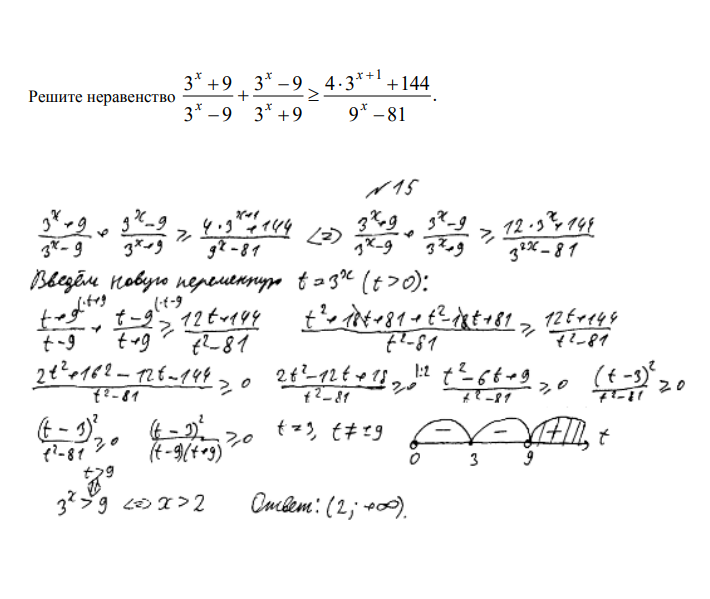 Решите неравенство (3^x + 9)/(3^x − 9) + (3^x − 9)/(3^x + 9) ≥ (4·3^(x+1) + 144)/(9^x − 81).
№15
(3^x + 9)/(3^x − 9) + (3^x − 9)/(3^x + 9) ≥ (4·3^(x+1) + 144)/(9^x − 81) <=> (3^x + 9)/(3^x − 9) + (3^x − 9)/(3^x + 9) ≥ (12·3^x + 144)/(3^(2x) − 81)
Введём новую переменную t = 3^x (t > 0):
(t + 9)/(t − 9) (·t+9 + (t − 9)/(t + 9) (·t−9 ≥ (12t + 144)/(t² − 81) (t² + 18t + 81 + t² − 18t + 81)/(t² − 81) ≥ (12t + 144)/(t² − 81)
(2t² + 162 − 12t − 144)/(t² − 81) ≥ 0 (2t² − 12t + 18)/(t² − 81) ≥ 0 |:2 (t² − 6t + 9)/(t² − 81) ≥ 0 (t − 3)²/(t² − 81) ≥ 0
(t − 3)²/(t² − 81) ≥ 0 (t − 3)²/((t − 9)(t + 9)) ≥ 0 t = 3, t ≠ ±9 − − + t
0 3 9
t > 9
⇕
3^x > 9 <=> x > 2 Ответ: (2; +∞).